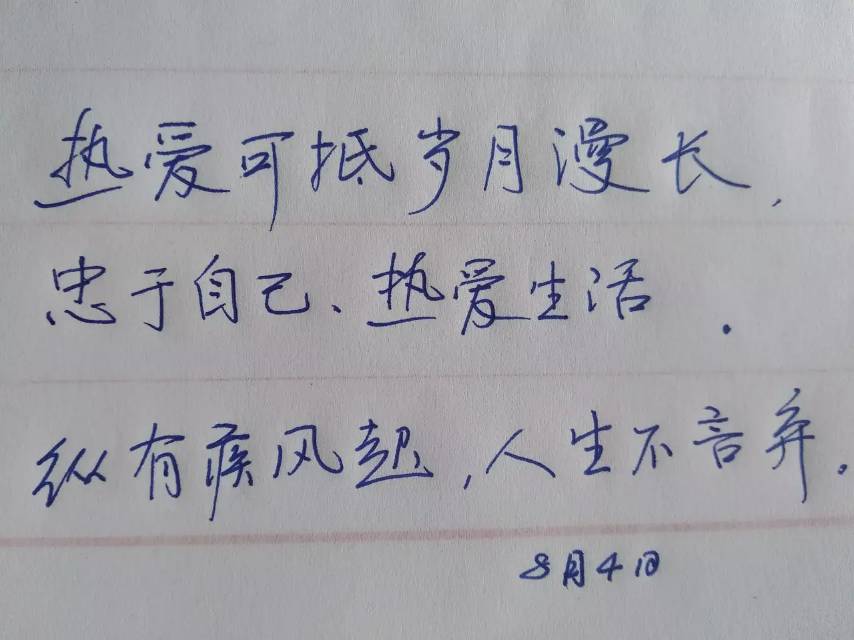 热爱可抵岁月漫长,
忠于自己、热爱生活.
纵有疾风起,人生不言弃.
8月4日